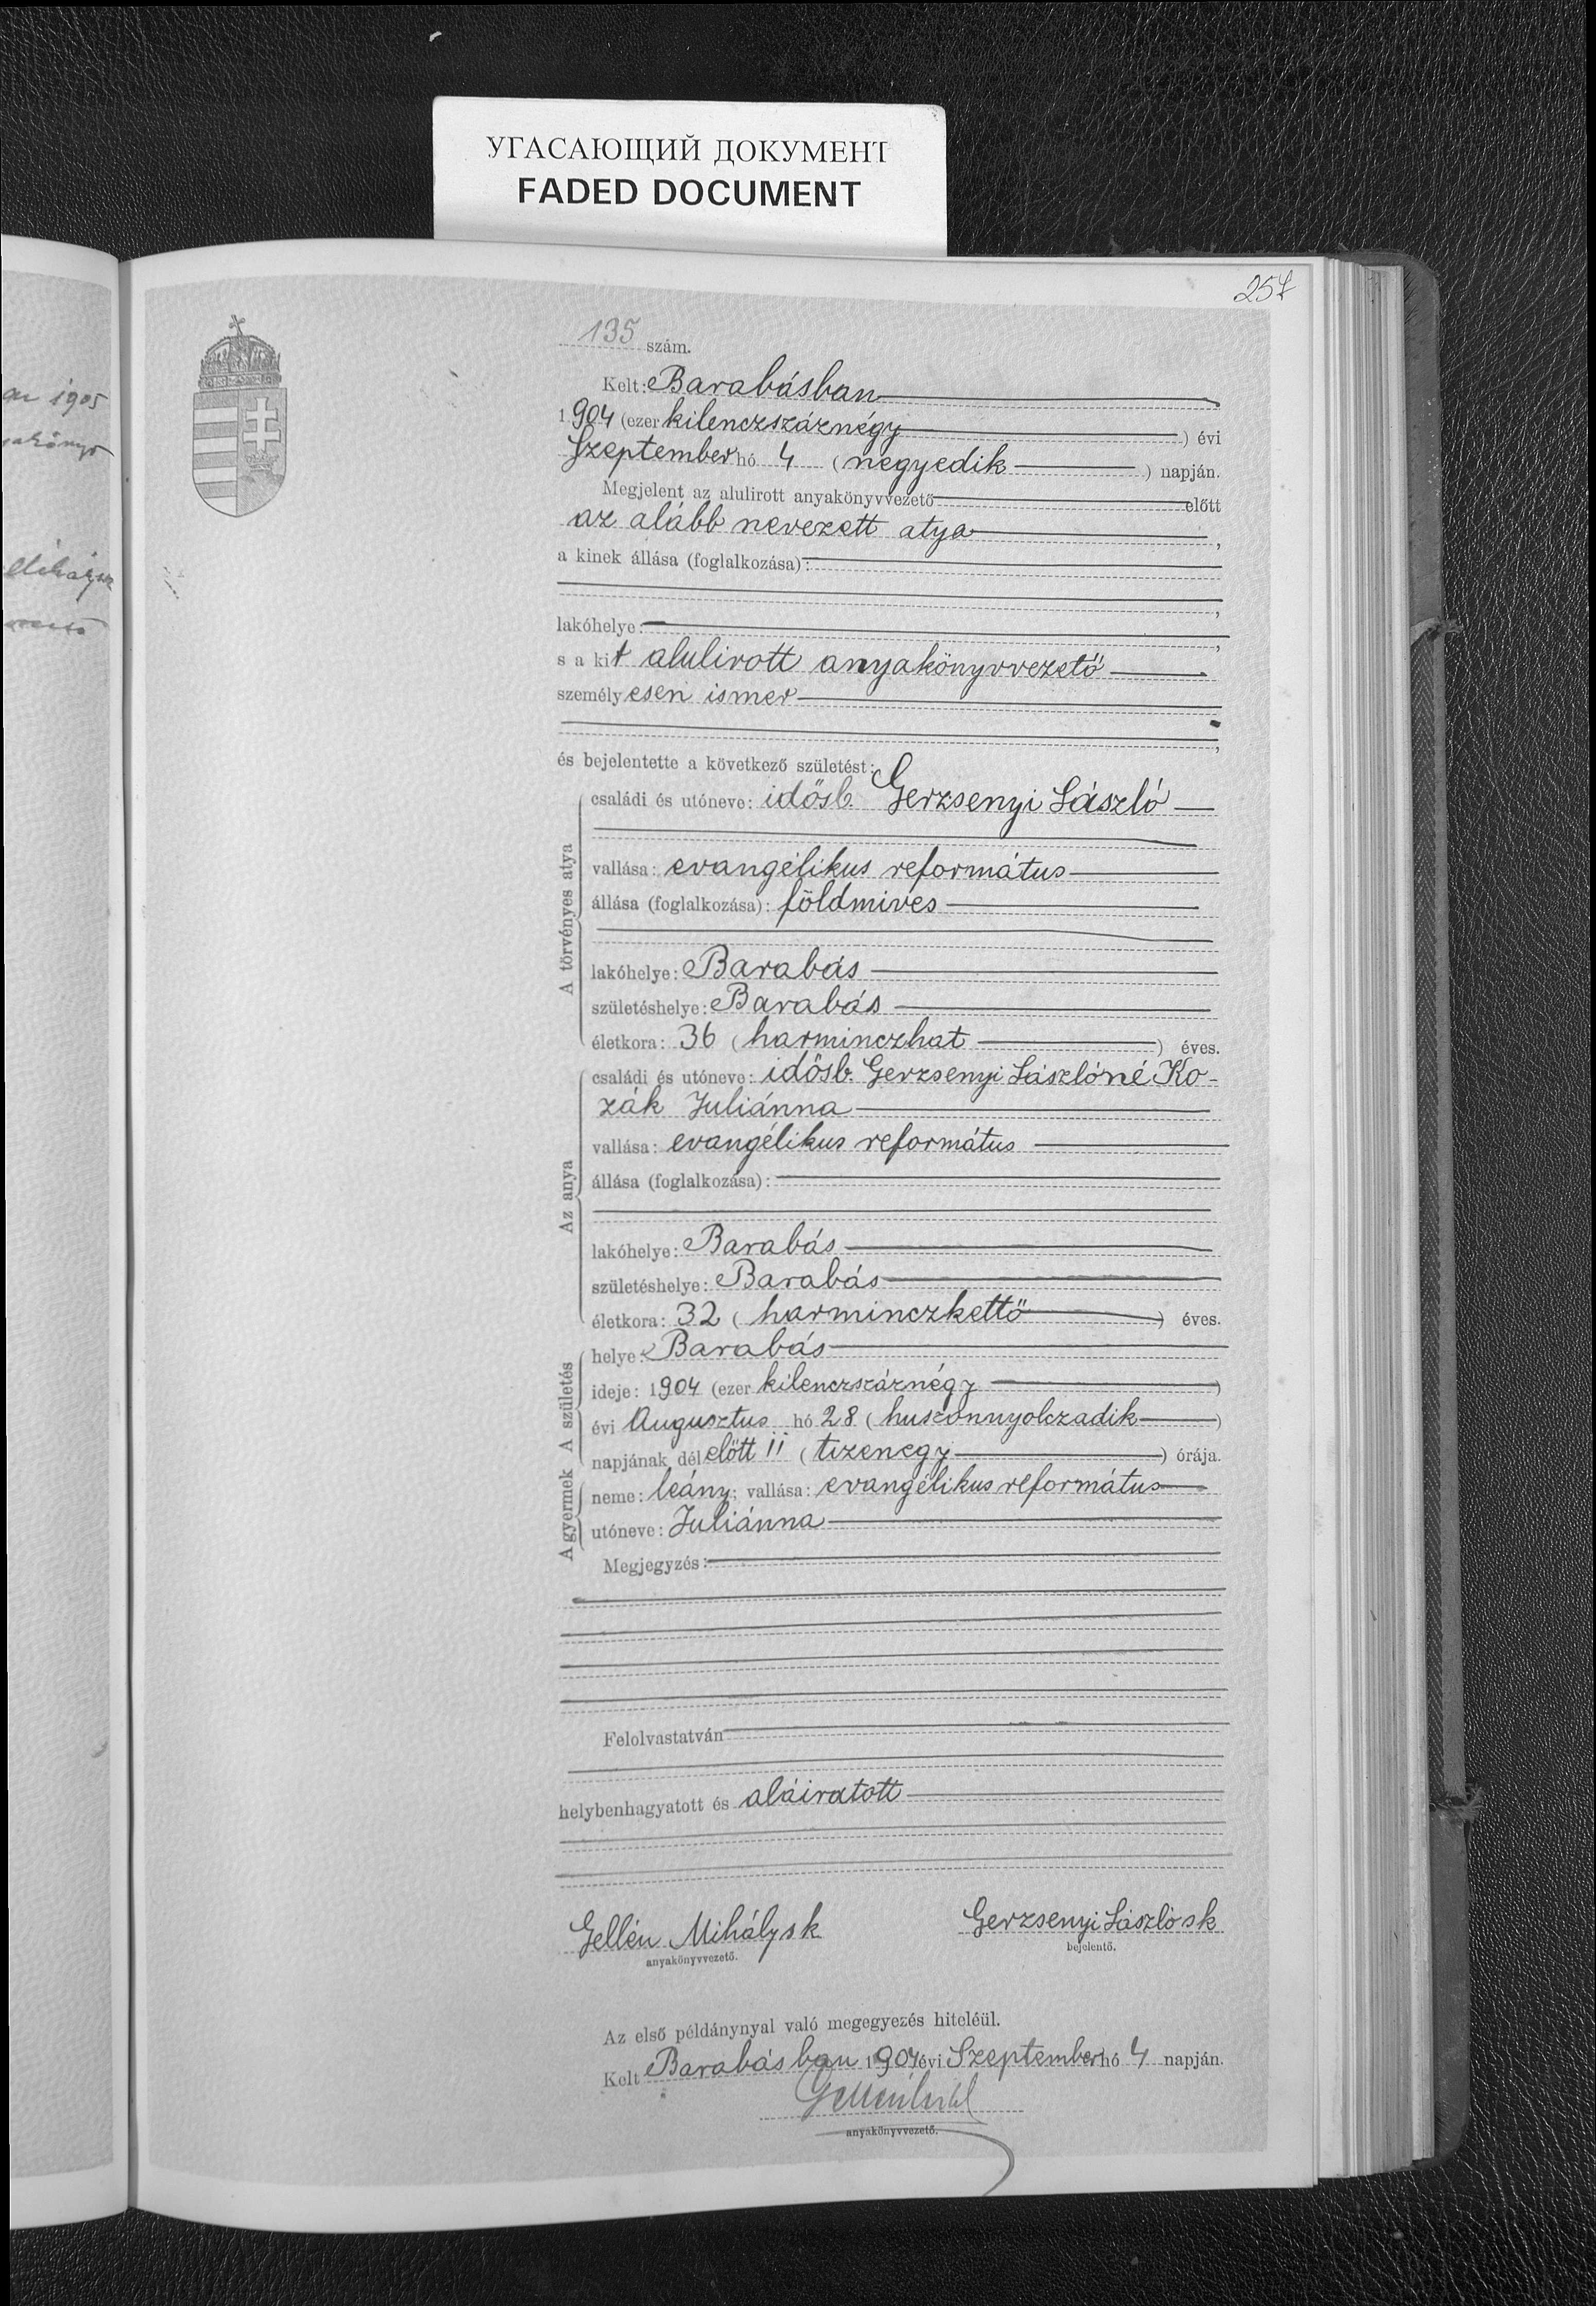 УГАСАЮЩИЙ ДОКУМЕНТ
FADED DOCUMENT
257
135 szám.
Kelt: Barabásban
1904 (ezer kilenczszáznégy) évi
Szeptember hó 4 (negyedik) napján.
Megjelent az alulirott anyakönyvvezető előtt
az alább nevezett atya,
a kinek állása (foglalkozása):
lakóhelye:
s a kit alulirott anyakönyvvezető
személyesen ismer
és bejelentette a következő születést:
A törvényes atya
családi és utóneve: idősb. Gerzsenyi László
vallása: evangélikus református
állása (foglalkozása): földmives
lakóhelye: Barabás
születéshelye: Barabás
életkora: 36 (harminczhat) éves.
Az anya
családi és utóneve: idősb. Gerzsenyi Lászlóné Ko-
zák Juliánna
vallása: evangélikus református
állása (foglalkozása):
lakóhelye: Barabás
születéshelye: Barabás
életkora: 32 (harminczkettő) éves.
A születés
helye: Barabás
ideje: 1904 (ezer kilenczszáznégy)
évi Augusztus hó 28 (huszonnyolczadik)
napjának délelőtt 11 (tizenegy) órája.
A gyermek
neme: leány; vallása: evangélikus református
utóneve: Juliánna
Megjegyzés:
Felolvastatván
helybenhagyatott és aláiratott
Gellén Mihály sk Gerzsenyi László sk
anyakönyvvezető. bejelentő.
Az első példánynyal való megegyezés hiteléül.
Kelt Barabásban 1904 évi Szeptember hó 4 napján.
anyakönyvvezető.
an 1905